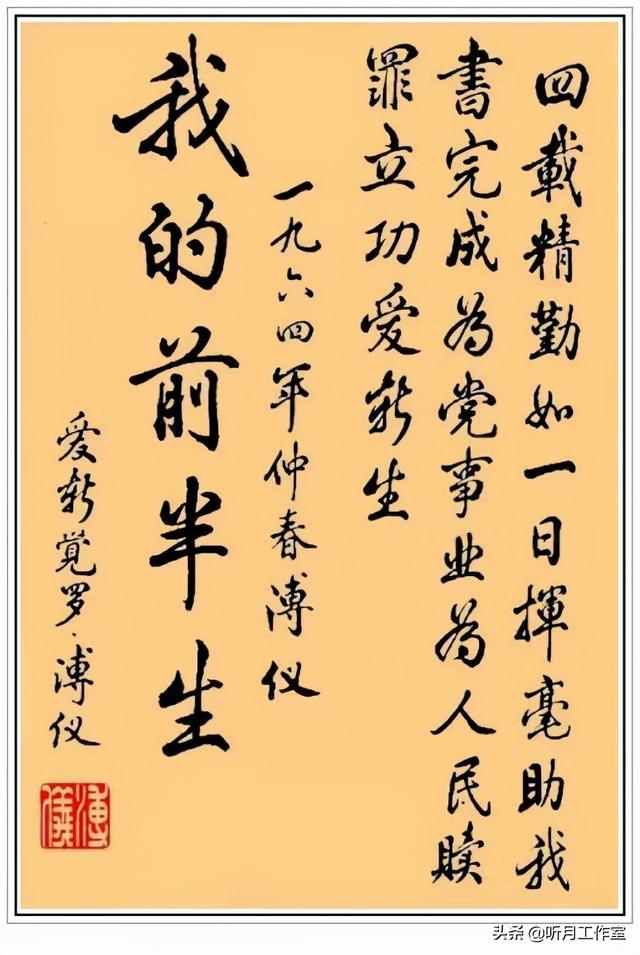 四載精勤如一日揮毫助我
書完成為党事业為人民贖
罪立功爱新生
一九六四年仲春溥仪
我的前半生
爱新覚罗·溥仪
溥儀
头条 @听月工作室